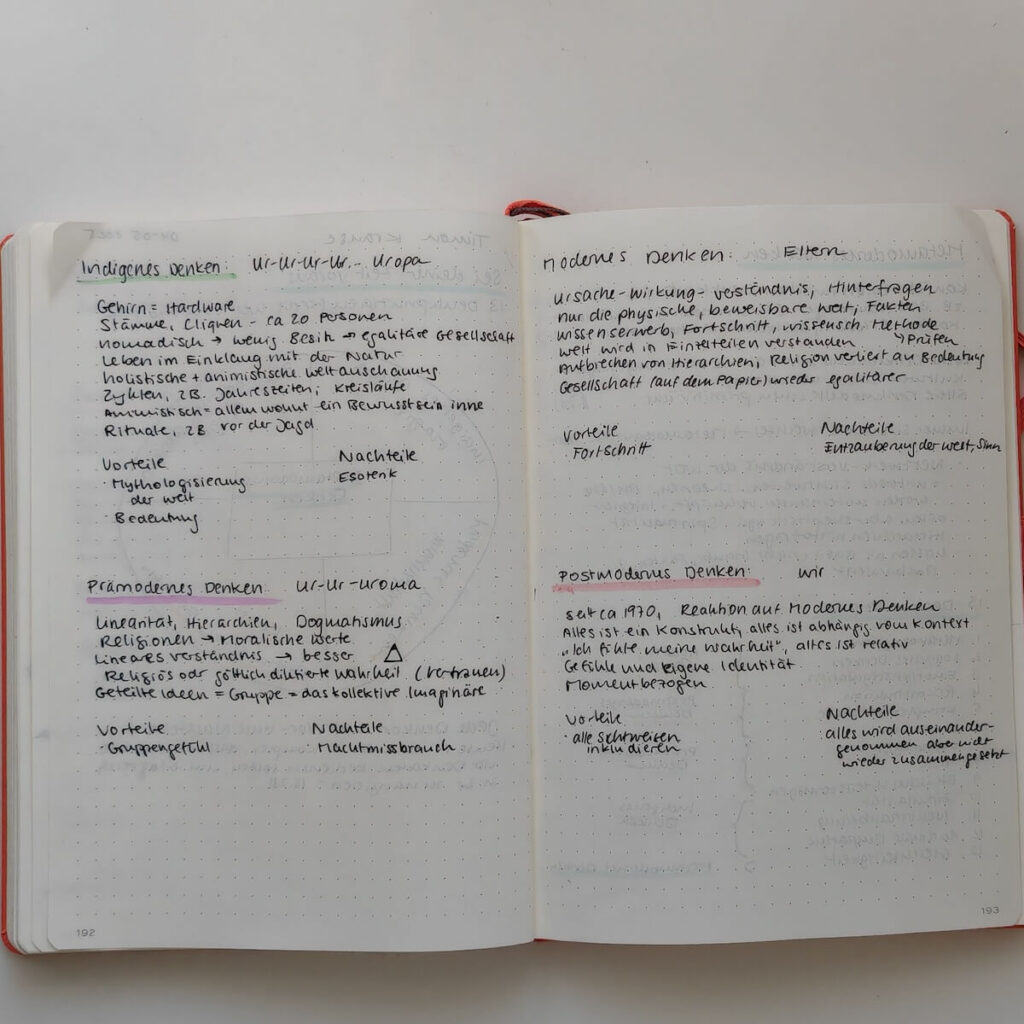 Indigenes Denken: Ur-Ur-Ur-Ur... Uropa
Gehirn = Hardware
Stämme, Cliquen - ca 20 Personen
nomadisch → wenig Besitz → egalitäre Gesellschaft
Leben im Einklang mit der Natur
holistische + animistische Weltanschauung
Zyklen, zB. Jahreszeiten, Kreisläufe
Animistisch = allem wohnt ein Bewusstsein inne
Rituale, zB vor der Jagd
Vorteile Nachteile
· Mythologisierung Esoterik
der Welt
· Bedeutung
Prämodernes Denken Ur-Ur-Uroma
Linearität, Hierarchien, Dogmatismus
Religionen → Moralische Werte
Lineares Verständnis → besser △
Religiös oder göttlich diktierte Wahrheit (Vertrauen)
Geteilte Ideen = Gruppe = das kollektive Imaginäre
Vorteile Nachteile
· Gruppengefühl · Machtmissbrauch
192
Modernes Denken: Eltern
Ursache-Wirkung-Verständnis, Hinterfragen
nur die physische, beweisbare Welt, Fakten
Wissenserwerb, Fortschritt, wissensch. Methode
Welt wird in Einzelteilen verstanden ↳ Prüfen
Aufbrechen von Hierarchien, Religion verliert an Bedeutung
Gesellschaft (auf dem Papier) wieder egalitärer
Vorteile Nachteile
· Fortschritt Entzauberung der Welt, Sinn
Postmodernes Denken: Wir
seit ca 1970, Reaktion auf Modernes Denken
Alles ist ein Konstrukt, alles ist abhängig vom Kontext
„Ich fühle meine Wahrheit", alles ist relativ
Gefühle und eigene Identität
Momentbezogen
Vorteile Nachteile
· alle Sichtweisen · alles wird auseinander-
inkludieren genommen aber nicht
wieder zusammengesetzt
193